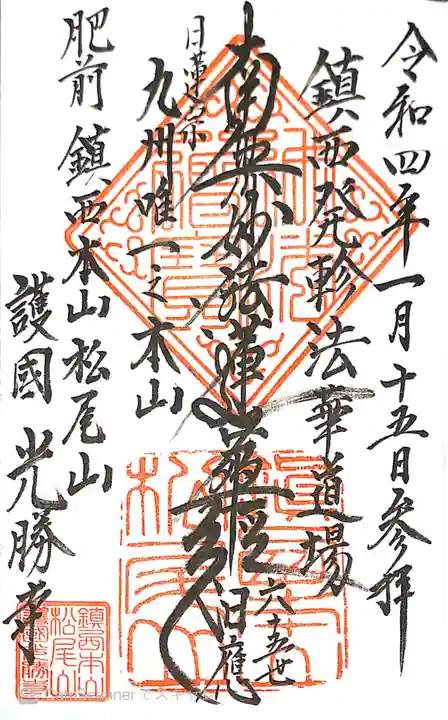 令和四年一月十五日参拝
鎮西発軫法華道場
南無妙法蓮華経
六十五世 日應
日蓮宗
九州唯一之本山
肥前 鎮西本山 松尾山
護國 光勝寺
鎮西本山
松尾山
護國光勝寺